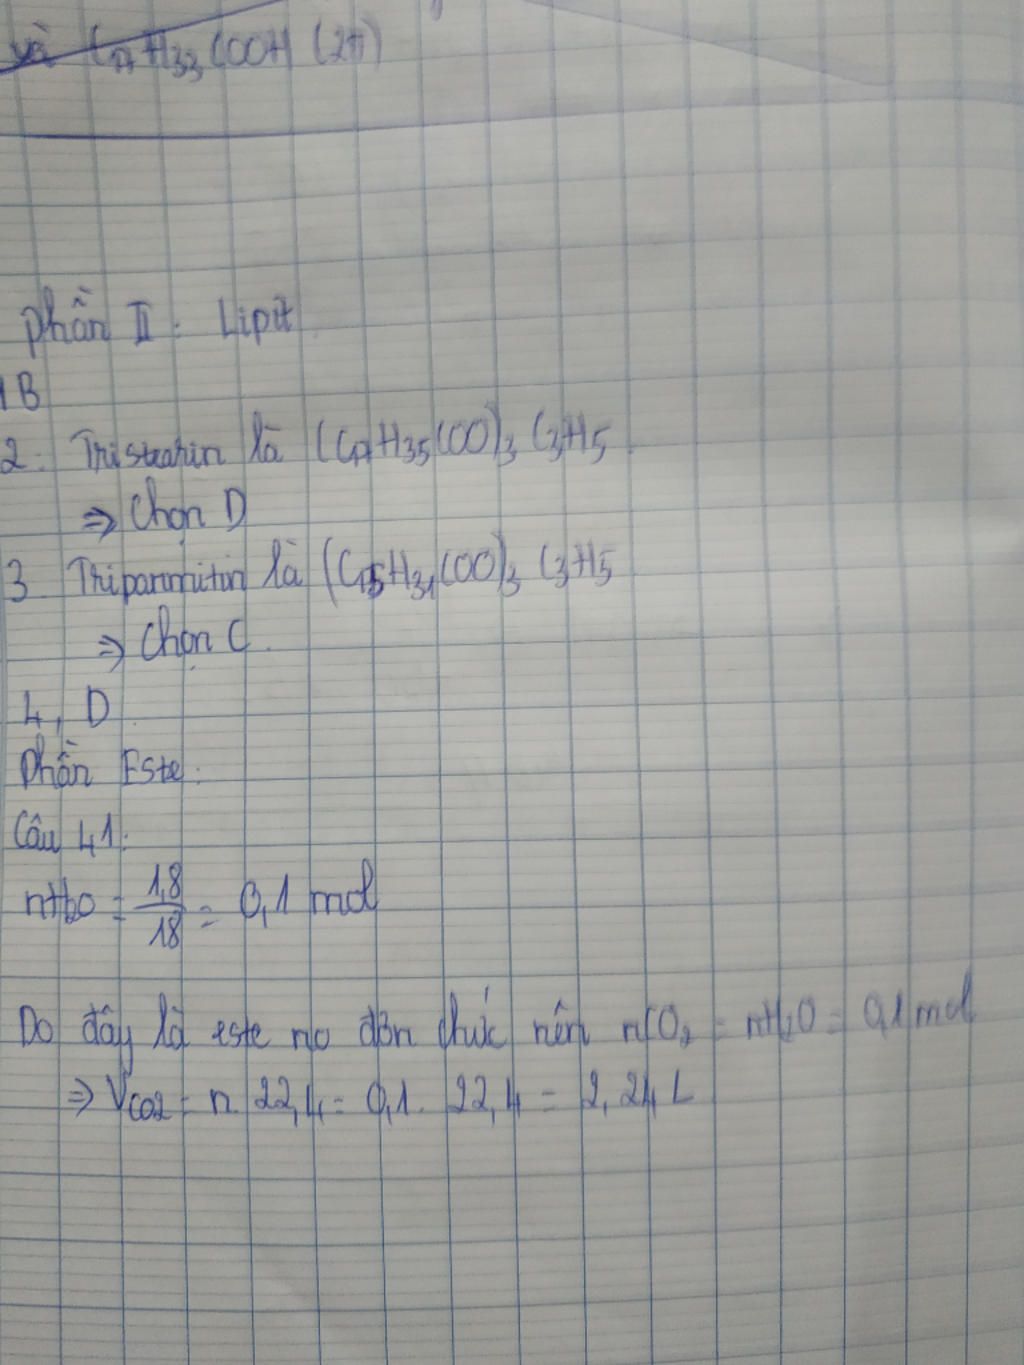 và C₁₇H₃₃COOH (2t)
Phần II: Lipit
1B
2. Tristearin là (C₁₇H₃₅COO)₃C₃H₅
⇒ Chọn D
3 Tripanmitin là (C₁₅H₃₁COO)₃C₃H₅
⇒ Chọn C.
4, D
Phần Este:
Câu 41:
nH₂O = 1,8/18 = 0,1 mol
Do đây là este no đơn chức nên nCO₂ = nH₂O = 0,1 mol
⇒ VCO₂ = n. 22,4 = 0,1. 22,4 = 2,24 L